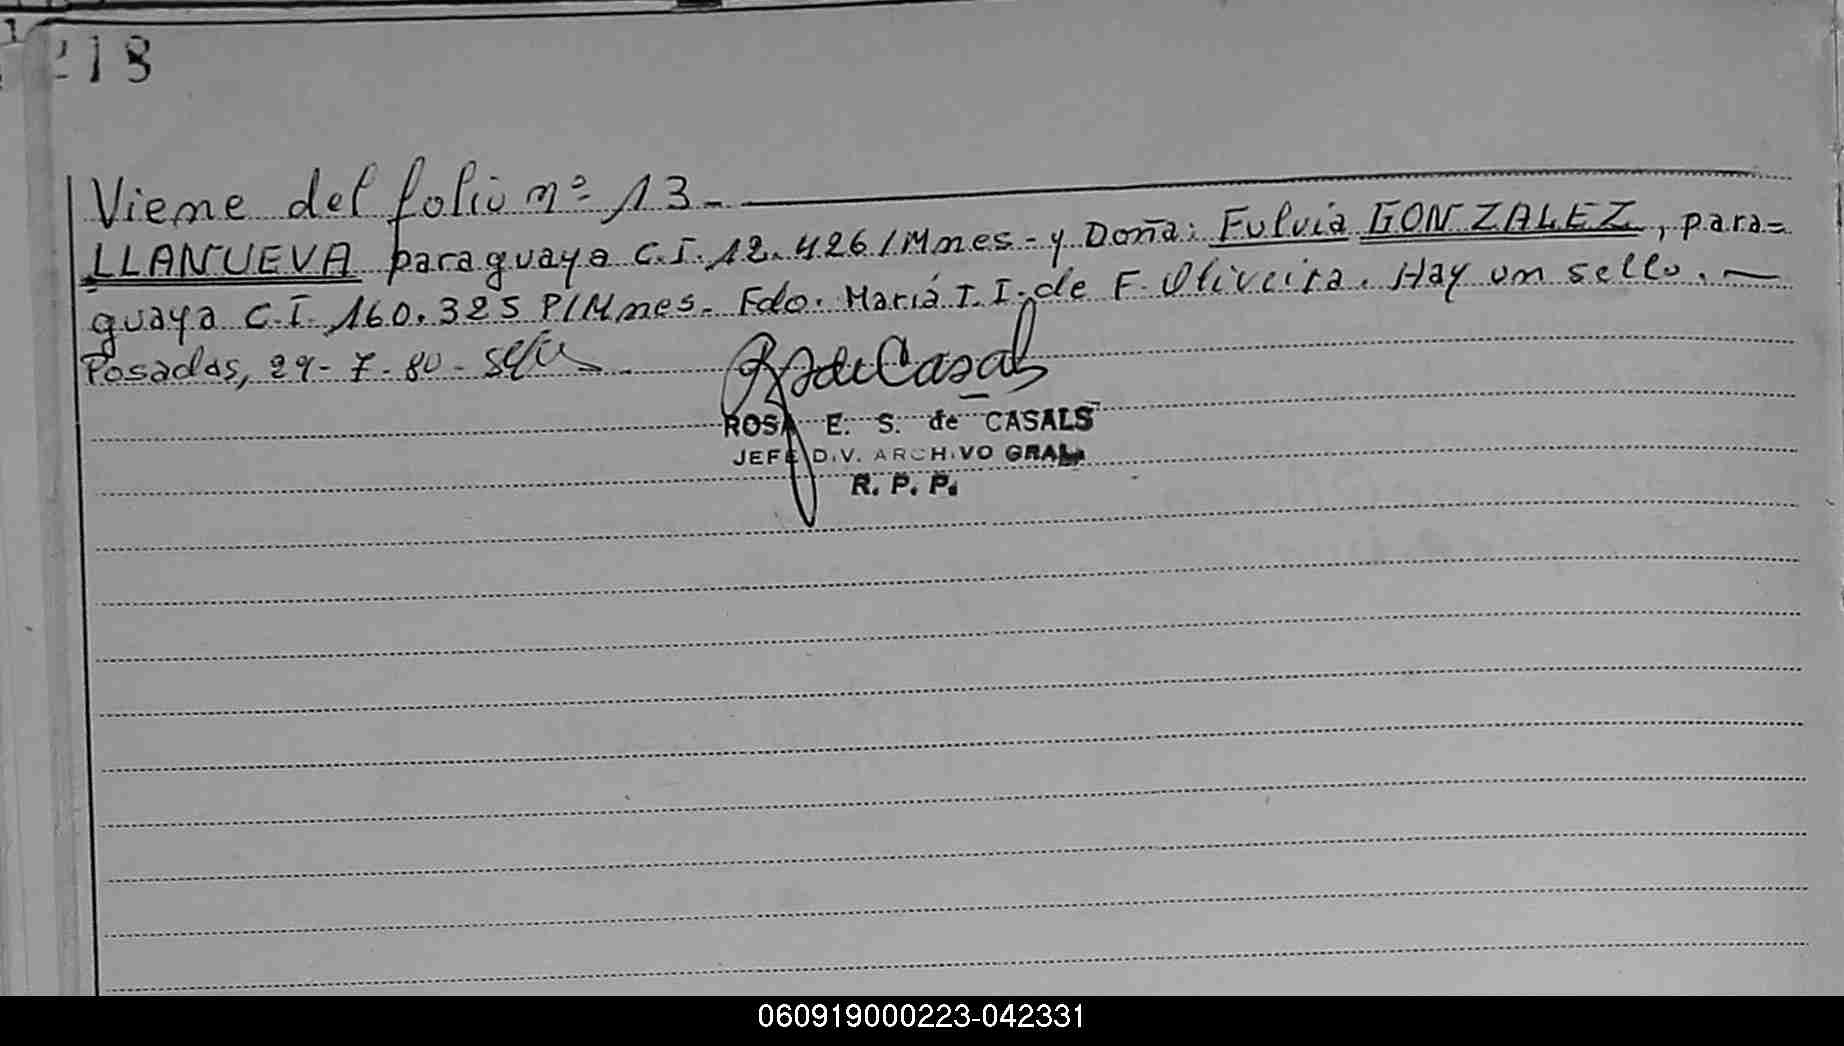 218
Viene del folio nº 13.-
LLANUEVA paraguaya C.I. 12.426/Mnes- y Doña: Fulvia GONZALEZ, para=
guaya C.I. 160.325 P/Mnes.- Fdo. María T. I. de F. Oliveira. Hay un sello.-
Posadas, 29-7-80-
ROSA E. S. de CASALS
JEFE DIV. ARCHIVO GRAL.
R. P. P.
060919000223-042331